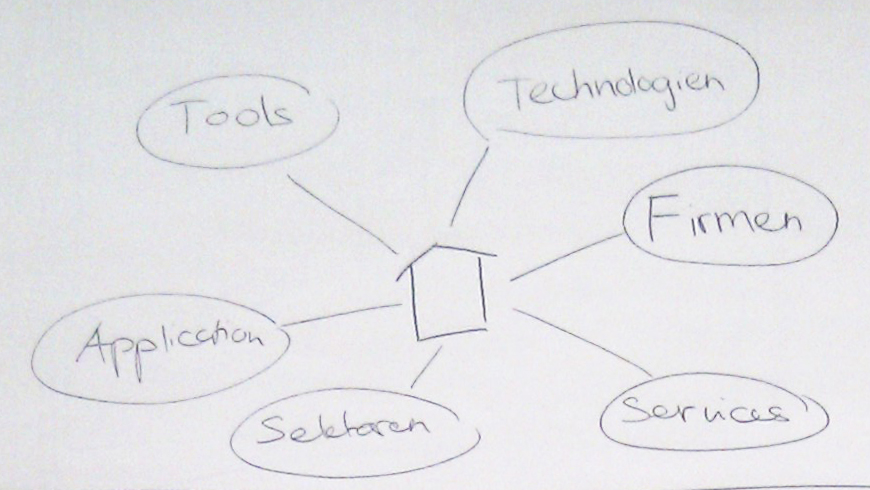 Tools
Technologien
Firmen
Application
Sektoren
Services